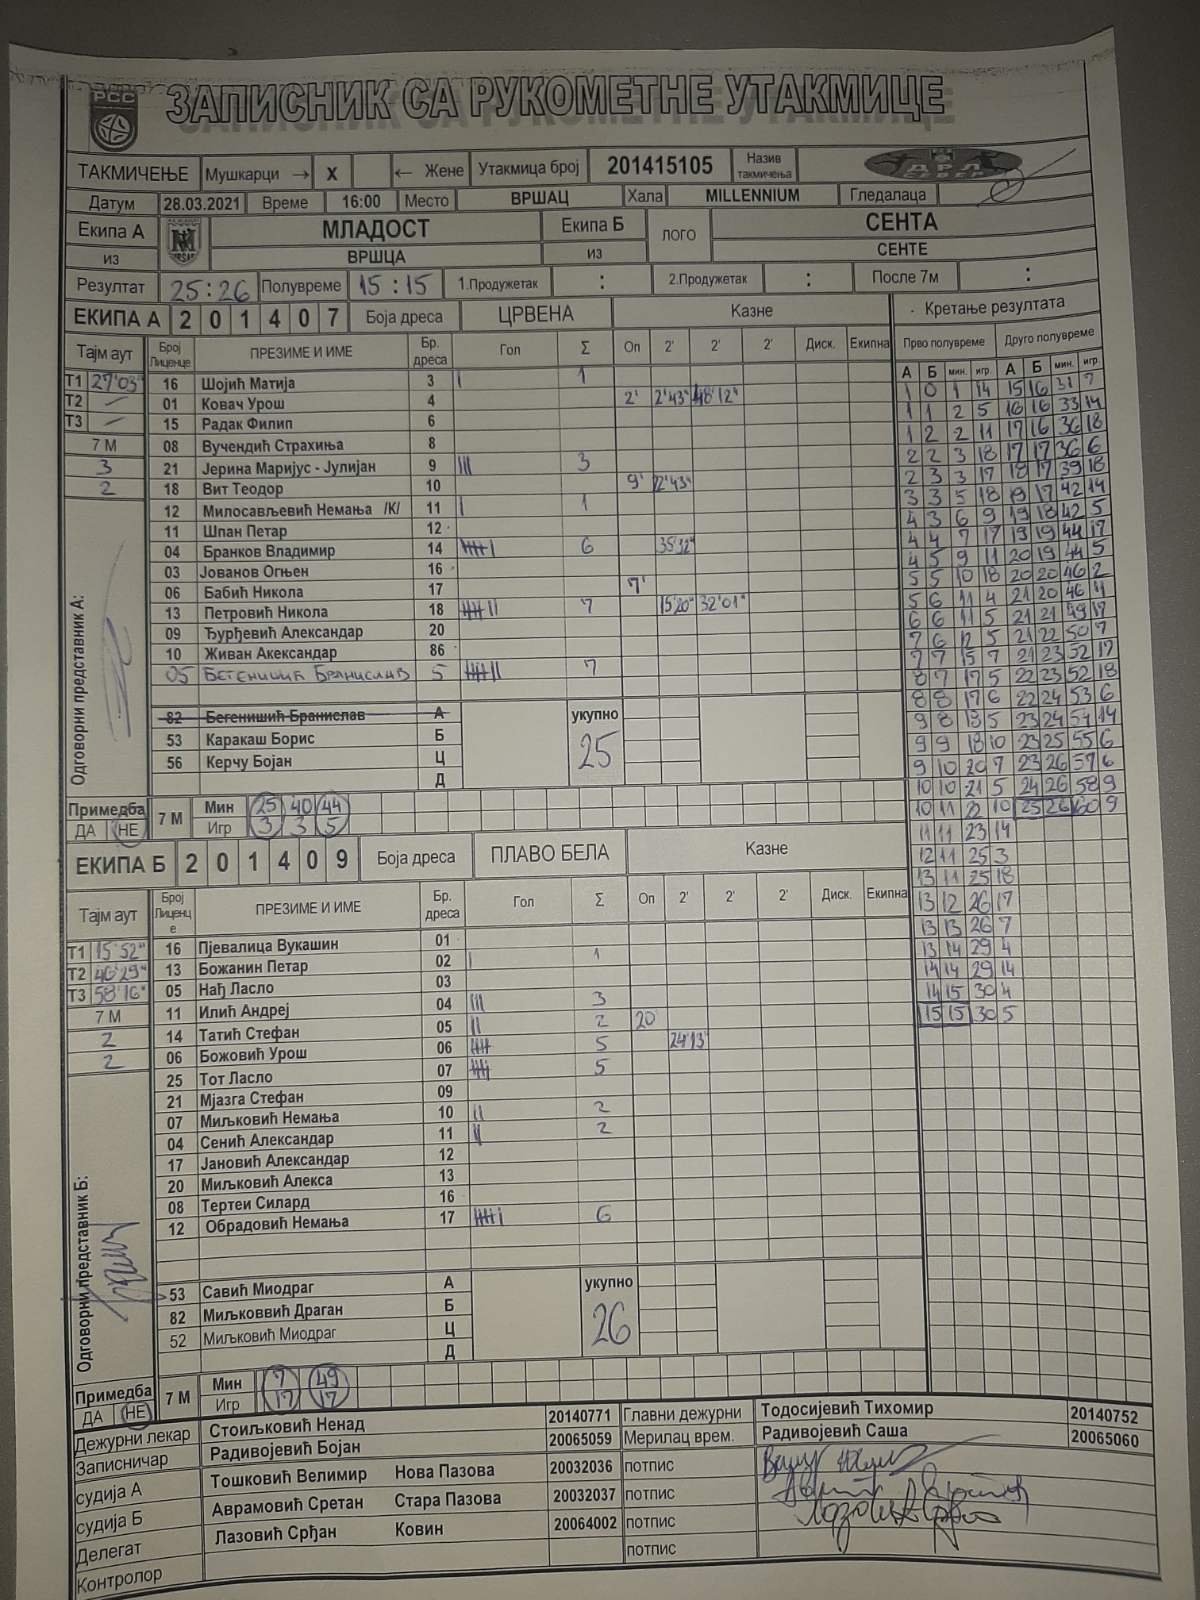 РСС ЗАПИСНИК СА РУКОМЕТНЕ УТАКМИЦЕ
ТАКМИЧЕЊЕ Мушкарци → x ← Жене Утакмица број 201415105 Назив такмичења
Датум 28.03.2021 Време 16:00 Место ВРШАЦ Хала MILLENNIUM Гледалаца
Екипа А МЛАДОСТ Екипа Б ЛОГО СЕНТА
из ВРШЦА из СЕНТЕ
Резултат 25:26 Полувреме 15:15 1.Продужетак : 2.Продужетак : После 7м :
ЕКИПА А 2 0 1 4 0 7 Боја дреса ЦРВЕНА Казне Кретање резултата
Тајм аут Број Лиценце ПРЕЗИМЕ И ИМЕ Бр. дреса Гол Σ Оп 2' 2' 2' Диск. Екипна Прво полувреме Друго полувреме
А Б мин. игр. А Б мин. игр.
Т1 27'03" 16 Шојић Матија 3 I 1
Т2 – 01 Ковач Урош 4 2' 2'43" 48'12"
Т3 – 15 Радак Филип 6
7 М 08 Вучендић Страхиња 8
3 21 Јерина Маријус - Јулијан 9 III 3
2 18 Вит Теодор 10 9' 22'43"
12 Милосављевић Немања /К/ 11 I 1
11 Шпан Петар 12
04 Бранков Владимир 14 IIIII I 6 35'32"
03 Јованов Огњен 16
06 Бабић Никола 17 7'
13 Петровић Никола 18 IIIII II 7 15'20" 32'01"
09 Ђурђевић Александар 20
10 Живан Акександар 86
05 БЕГЕНИШИЋ БРАНИСЛАВ 5 IIIII II 7
82 Бегенишић Бранислав А укупно
53 Каракаш Борис Б 25
56 Керчу Бојан Ц
Д
Одговорни представник А:
Примедба 7 М Мин 25 40 44
ДА НЕ Игр 3 3 5
1 0 1 14 15 16 31 7
1 1 2 5 16 16 33 14
1 2 2 11 17 16 36 18
2 2 3 18 17 17 36 6
2 3 3 17 18 17 39 18
3 3 5 18 19 17 42 14
4 3 6 9 19 18 42 5
4 4 7 17 19 19 44 17
4 5 9 11 20 19 44 5
5 5 10 18 20 20 46 2
5 6 11 4 21 20 46 11
6 6 11 5 21 21 49 17
7 6 12 5 21 22 50 7
7 7 15 7 21 23 52 17
8 7 17 5 22 23 52 18
8 8 17 6 22 24 53 6
9 8 18 5 23 24 54 14
9 9 18 10 23 25 55 6
9 10 20 7 23 26 57 6
10 10 21 5 24 26 58 9
10 11 22 10 25 26 60 9
11 11 23 14
12 11 25 3
13 11 25 18
13 12 26 17
13 13 26 7
13 14 29 4
14 14 29 14
14 15 30 4
15 15 30 5
ЕКИПА Б 2 0 1 4 0 9 Боја дреса ПЛАВО БЕЛА Казне
Тајм аут Број Лиценце ПРЕЗИМЕ И ИМЕ Бр. дреса Гол Σ Оп 2' 2' 2' Диск. Екипна
Т1 15'52" 16 Пјевалица Вукашин 01
Т2 46'29" 13 Божанин Петар 02 I 1
Т3 58'16" 05 Нађ Ласло 03
7 М 11 Илић Андреј 04 III 3
2 14 Татић Стефан 05 II 2 20
2 06 Божовић Урош 06 IIIII 5 24'13"
25 Тот Ласло 07 IIIII 5
21 Мјазга Стефан 09
07 Миљковић Немања 10 II 2
04 Сенић Александар 11 II 2
17 Јановић Александар 12
20 Миљковић Алекса 13
08 Тертеи Силард 16
12 Обрадовић Немања 17 IIIII I 6
53 Савић Миодраг А укупно
82 Миљковвић Драган Б 26
52 Миљковић Миодраг Ц
Д
Одговорни представник Б:
Примедба 7 М Мин 7 49
ДА НЕ Игр 17 17
Дежурни лекар Стоиљковић Ненад 20140771 Главни дежурни Тодосијевић Тихомир 20140752
Записничар Радивојевић Бојан 20065059 Мерилац врем. Радивојевић Саша 20065060
судија А Тошковић Велимир Нова Пазова 20032036 потпис
судија Б Аврамовић Сретан Стара Пазова 20032037 потпис
Делегат Лазовић Срђан Ковин 20064002 потпис
Контролор потпис